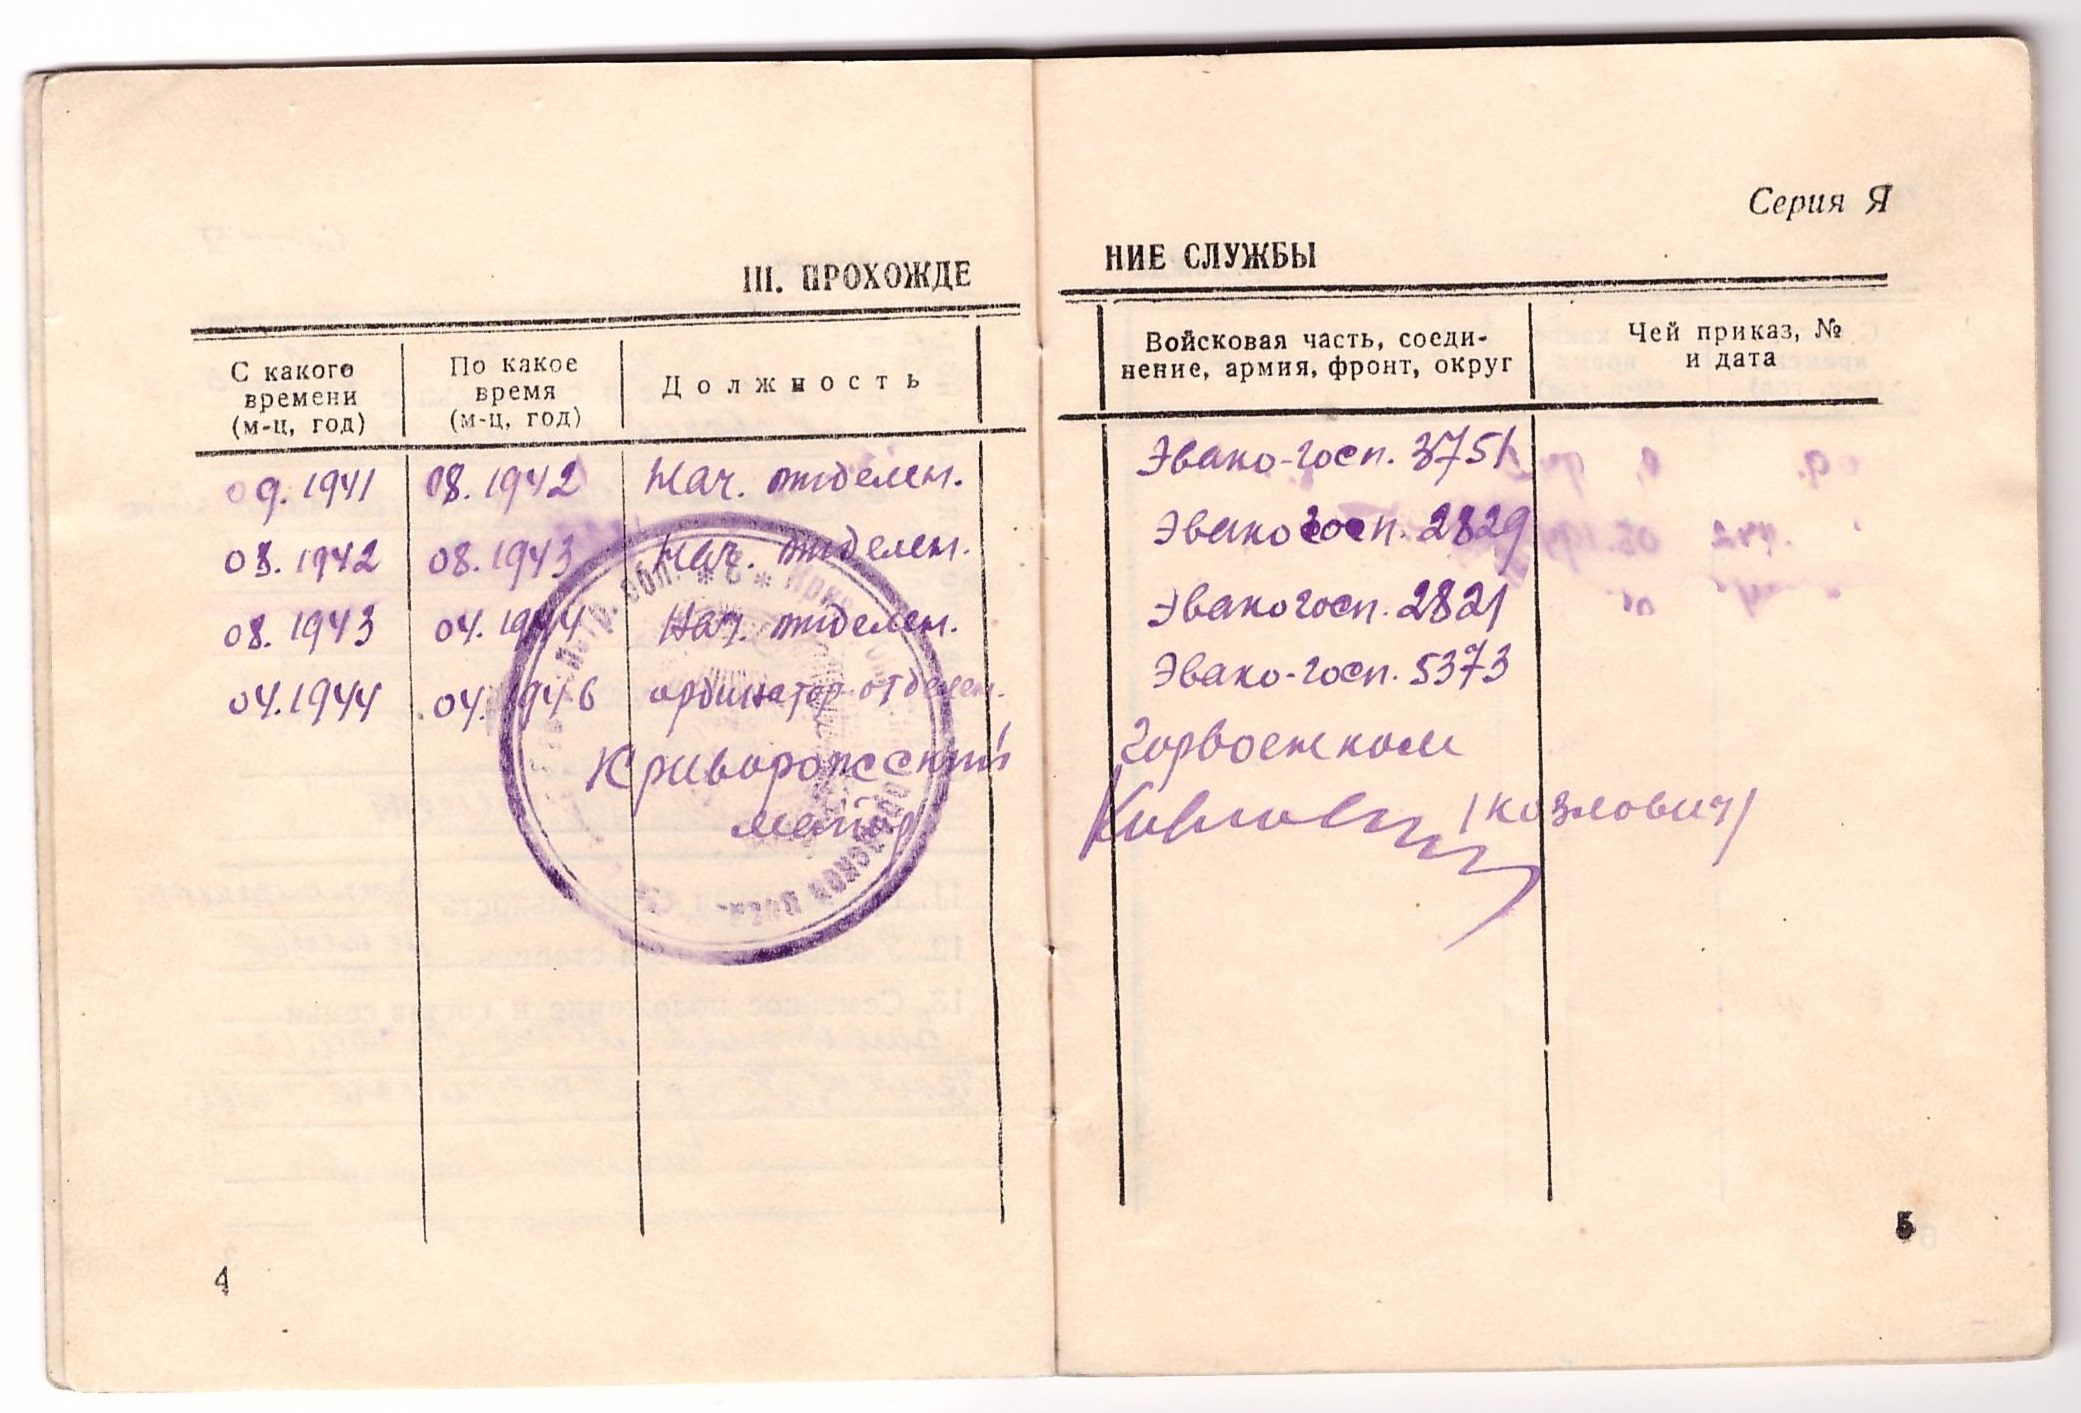 Серия Я
III. ПРОХОЖДЕ НИЕ СЛУЖБЫ
С какого времени (м-ц, год)
По какое время (м-ц, год)
Должность
Войсковая часть, соеди-
нение, армия, фронт, округ
Чей приказ, №
и дата
09.1941 08.1942 Нач. отделен. Эвако-госп. 3751
08.1942 08.1943 Нач. отделен. Эвакогосп. 2829
08.1943 04.1944 Нач. отделен. Эвакогосп. 2821
04.1944 04.1946 ординатор отделен. Эвако-госп. 5373
Криворожский горвоенком
майор (Козлович)
4
5